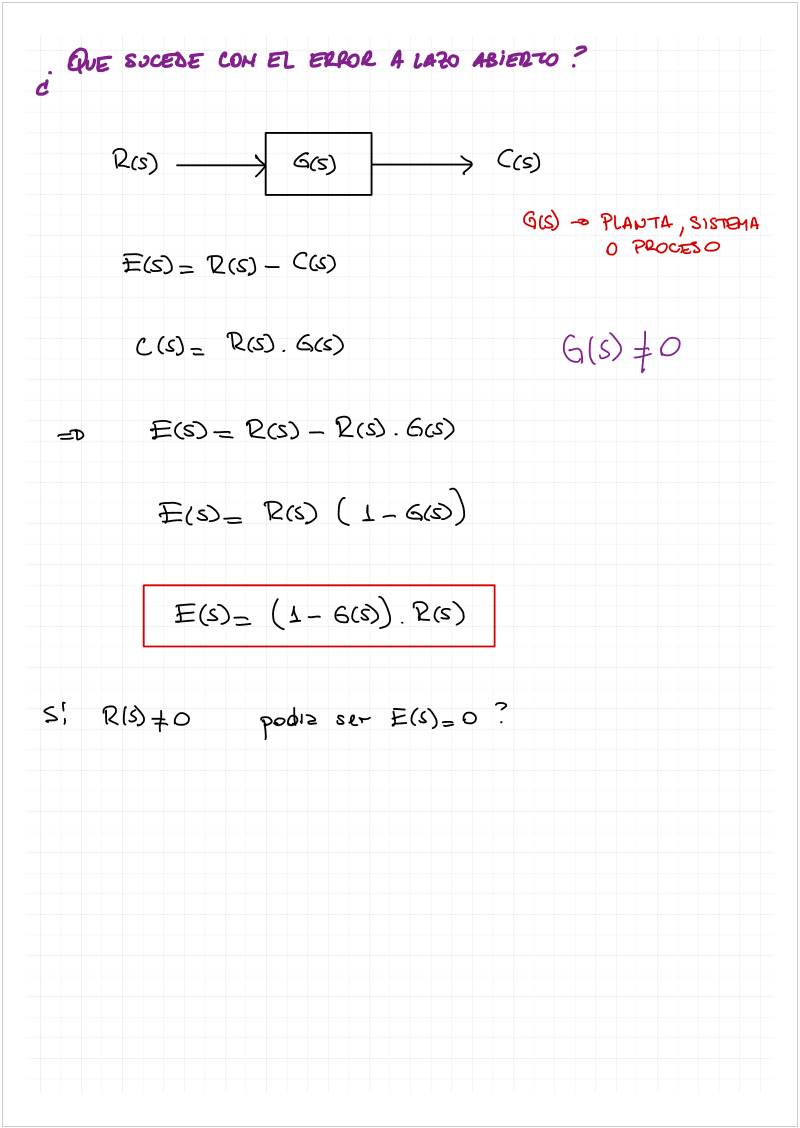 ¿ QUE SUCEDE CON EL ERROR A LAZO ABIERTO?
R(s) → G(s) → C(s)
G(s) → PLANTA, SISTEMA
O PROCESO
E(s) = R(s) - C(s)
C(s) = R(s) . G(s)
G(s) ≠ 0
⇒ E(s) = R(s) - R(s) . G(s)
E(s) = R(s) (1 - G(s))
E(s) = (1 - G(s)) . R(s)
Si R(s) ≠ 0 podia ser E(s) = 0 ?